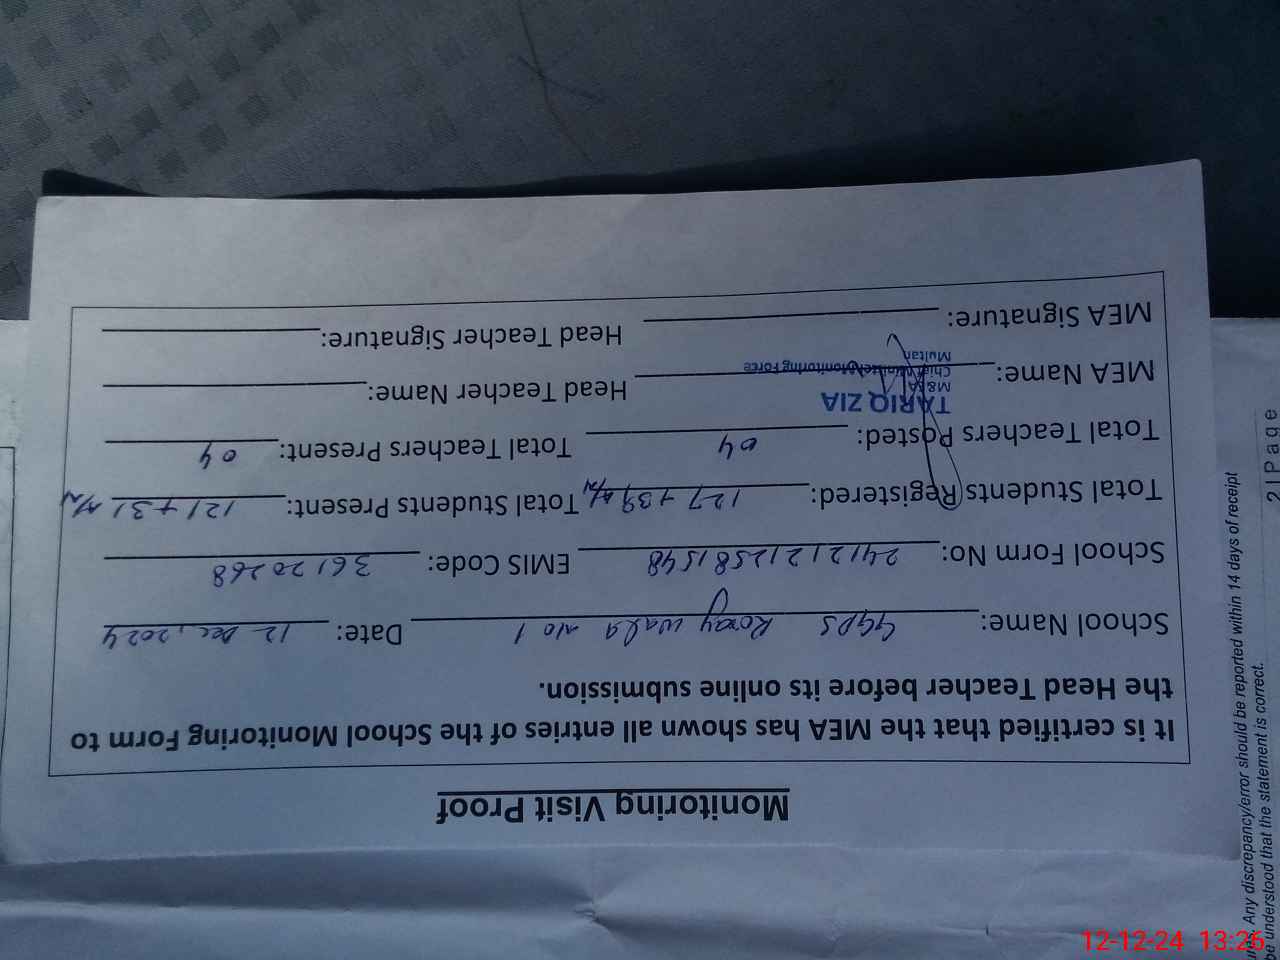 Monitoring Visit Proof
It is certified that the MEA has shown all entries of the School Monitoring Form to
the Head Teacher before its online submission.
School Name: GGPS wala no 1 Date: 12 Dec, 2024
School Form No: 24121212581548 EMIS Code: 36120268
Total Students Registered: 127 + 39 Total Students Present: 121 + 31
Total Teachers Posted: 04 Total Teachers Present: 04
TARIQ ZIA
M&EA
MEA Name: Head Teacher Name:
Chief Minister's Monitoring Force
Multan
MEA Signature: Head Teacher Signature:
Any discrepancy/error should be reported within 14 days of receipt
be understood that the statement is correct.
2 | Page
12-12-24 13:26